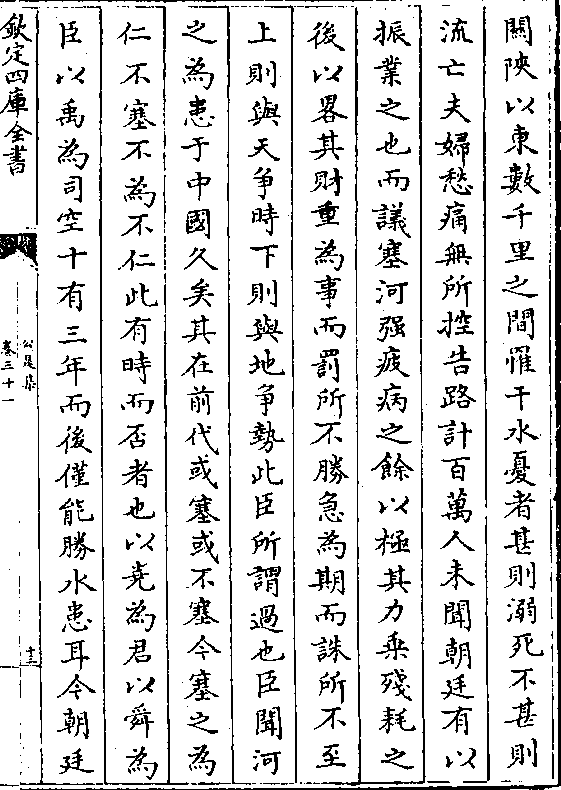 關陜以東數千里之間罹于水憂者甚則溺死不甚則
流亡夫婦愁痛無所控告路計百萬人未聞朝廷有以
振業之也而議塞河强疲病之餘以極其力乗殘耗之
後以畧其財重為事而罰所不勝急為期而誅所不至
上則與天爭時下則與地爭勢此臣所謂過也臣聞河
之為患于中國久矣其在前代或塞或不塞今塞之為
仁不塞不為不仁此有時而否者也以堯為君以舜為
臣以禹為司空十有三年而後僅能勝水患耳今朝廷
欽定四庫全書
公是集
卷三十一
十三